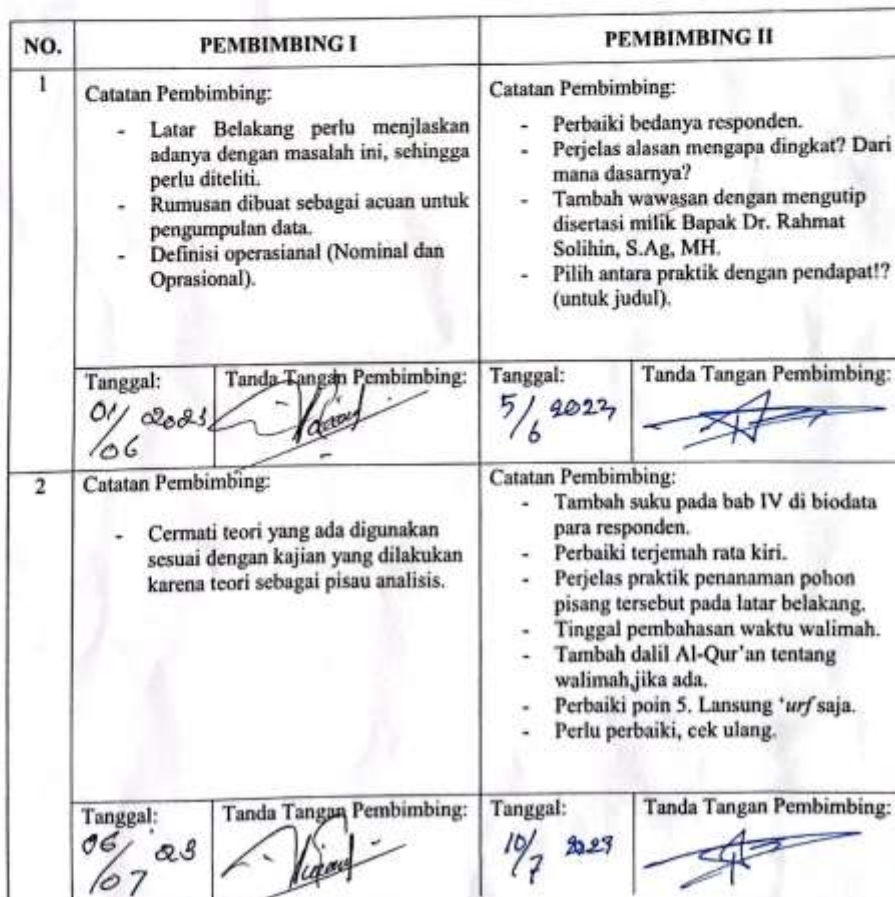 NO. PEMBIMBING I PEMBIMBING II
1
Catatan Pembimbing:
- Latar Belakang perlu menjlaskan
adanya dengan masalah ini, sehingga
perlu diteliti.
- Rumusan dibuat sebagai acuan untuk
pengumpulan data.
- Definisi operasianal (Nominal dan
Oprasional).
Catatan Pembimbing:
- Perbaiki bedanya responden.
- Perjelas alasan mengapa dingkat? Dari
mana dasarnya?
- Tambah wawasan dengan mengutip
disertasi milik Bapak Dr. Rahmat
Solihin, S.Ag, MH.
- Pilih antara praktik dengan pendapat!?
(untuk judul).
Tanggal:
01/06 2023
Tanda Tangan Pembimbing:
Tanggal:
5/6 2023
Tanda Tangan Pembimbing:
2
Catatan Pembimbing:
- Cermati teori yang ada digunakan
sesuai dengan kajian yang dilakukan
karena teori sebagai pisau analisis.
Catatan Pembimbing:
- Tambah suku pada bab IV di biodata
para responden.
- Perbaiki terjemah rata kiri.
- Perjelas praktik penanaman pohon
pisang tersebut pada latar belakang.
- Tinggal pembahasan waktu walimah.
- Tambah dalil Al-Qur'an tentang
walimah,jika ada.
- Perbaiki poin 5. Lansung 'urf saja.
- Perlu perbaiki, cek ulang.
Tanggal:
06/07 23
Tanda Tangan Pembimbing:
Tanggal:
10/7 2023
Tanda Tangan Pembimbing: